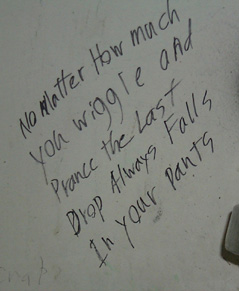 No Matter How much
you wiggle and
Prance the Last
Drop Always Falls
In your Pants